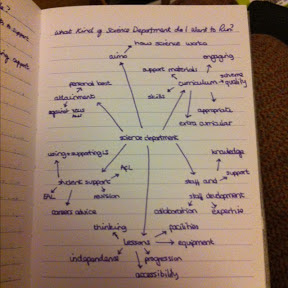 What Kind of Science Department do I Want to Run?
how science works
aims
engaging
support materials
scheme
quality
curriculum
personal best
skills
attainment
against
appropriate
extra curricular
science department
using + supporting
knowledge
AfL
student support
support
staff and
EAL
revision
staff development
careers advice
collaboration
expertise
thinking
facilities
Lessons
equipment
independence
progression
accessibility